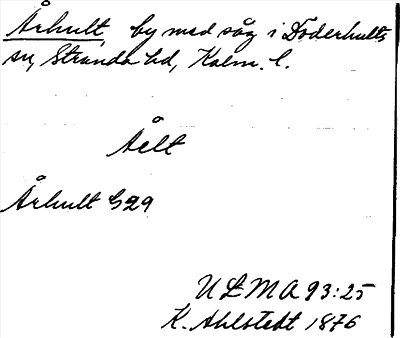 Århult, by med såg i Döderhults
sn, Stranda hd, Kalm. l.
Åelt
Århult S29
ULMA 93:25
K. Ahlstedt 1876